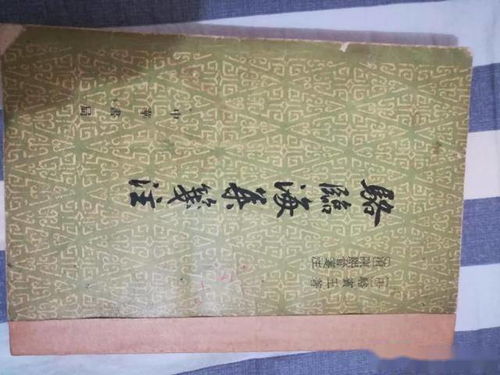 〔唐〕駱賓王著
〔清〕陳熙晉箋注
駱臨海集箋注
中華書局